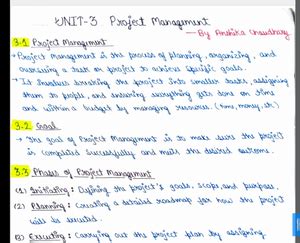 UNIT-3 Project Management
- By Anshika Chaudhary
3.1 Project Management
• Project Management is the process of planning, organizing, and
overseeing a task or project to achieve specific goals.
• It involves breaking the project into smaller tasks, assigning
them to people, and ensuring everything gets done on time
and within a budget by managing resources. (time, money, etc.)
3.2 Goal
→ The goal of Project Management is to make sure the project
is completed successfully and meets the desired outcome.
3.3 Phases of Project Management
(1) Initiating: Defining the project's goals, scope, and purpose.
(2) Planning: Creating a detailed roadmap for how the project
will be executed.
(3) Executing: Carrying out the project plan by assigning